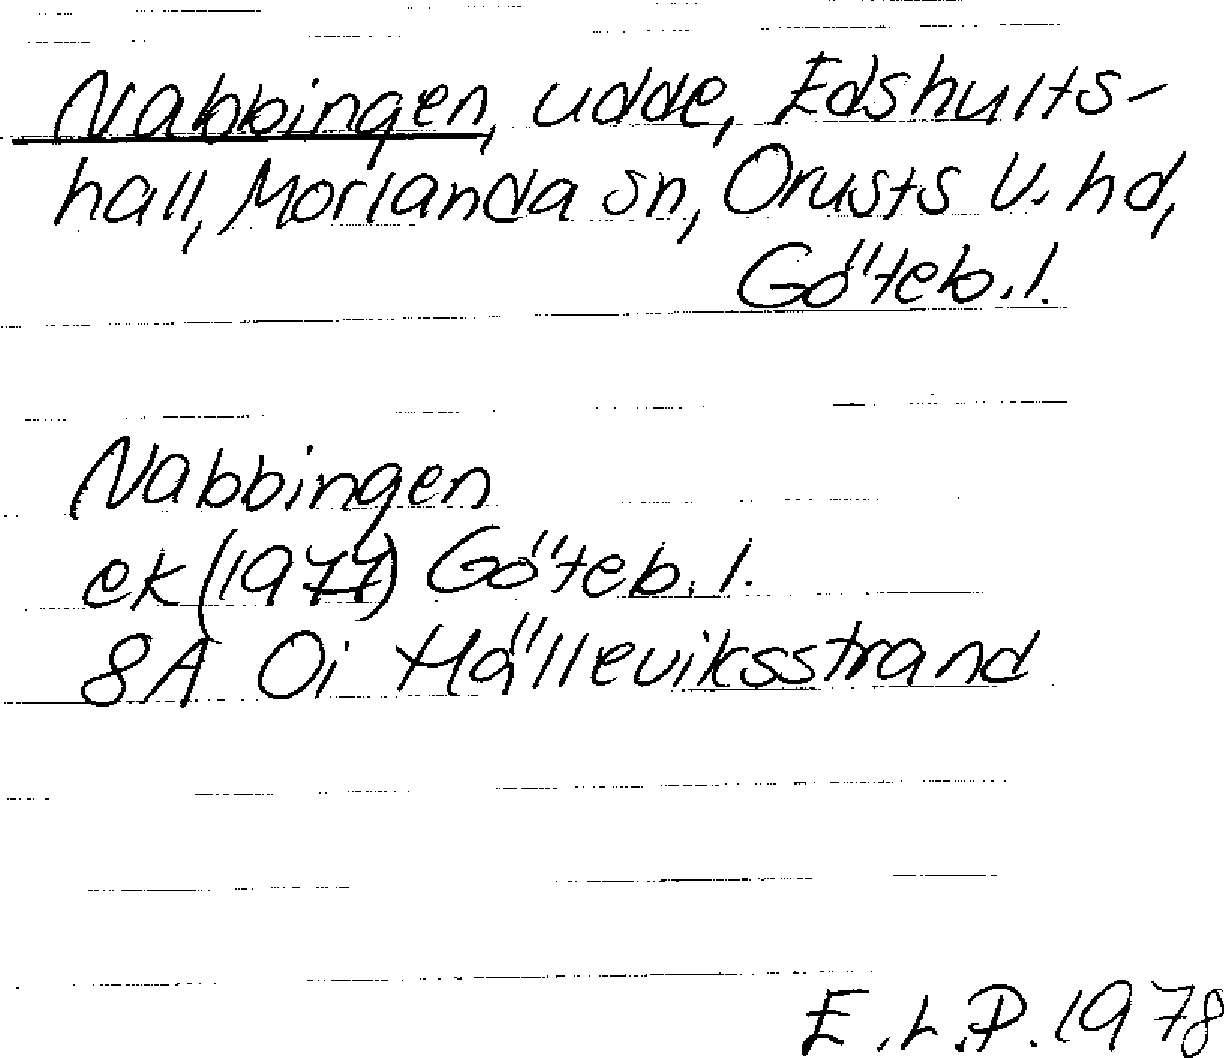 Nabbingen, udde, Edshults-
hall, Morlanda sn, Orusts V. hd,
Göteb. l.
Nabbingen
ek (1977) Göteb. l.
8A 0i Hälleviksstrand
E.L.P. 1978